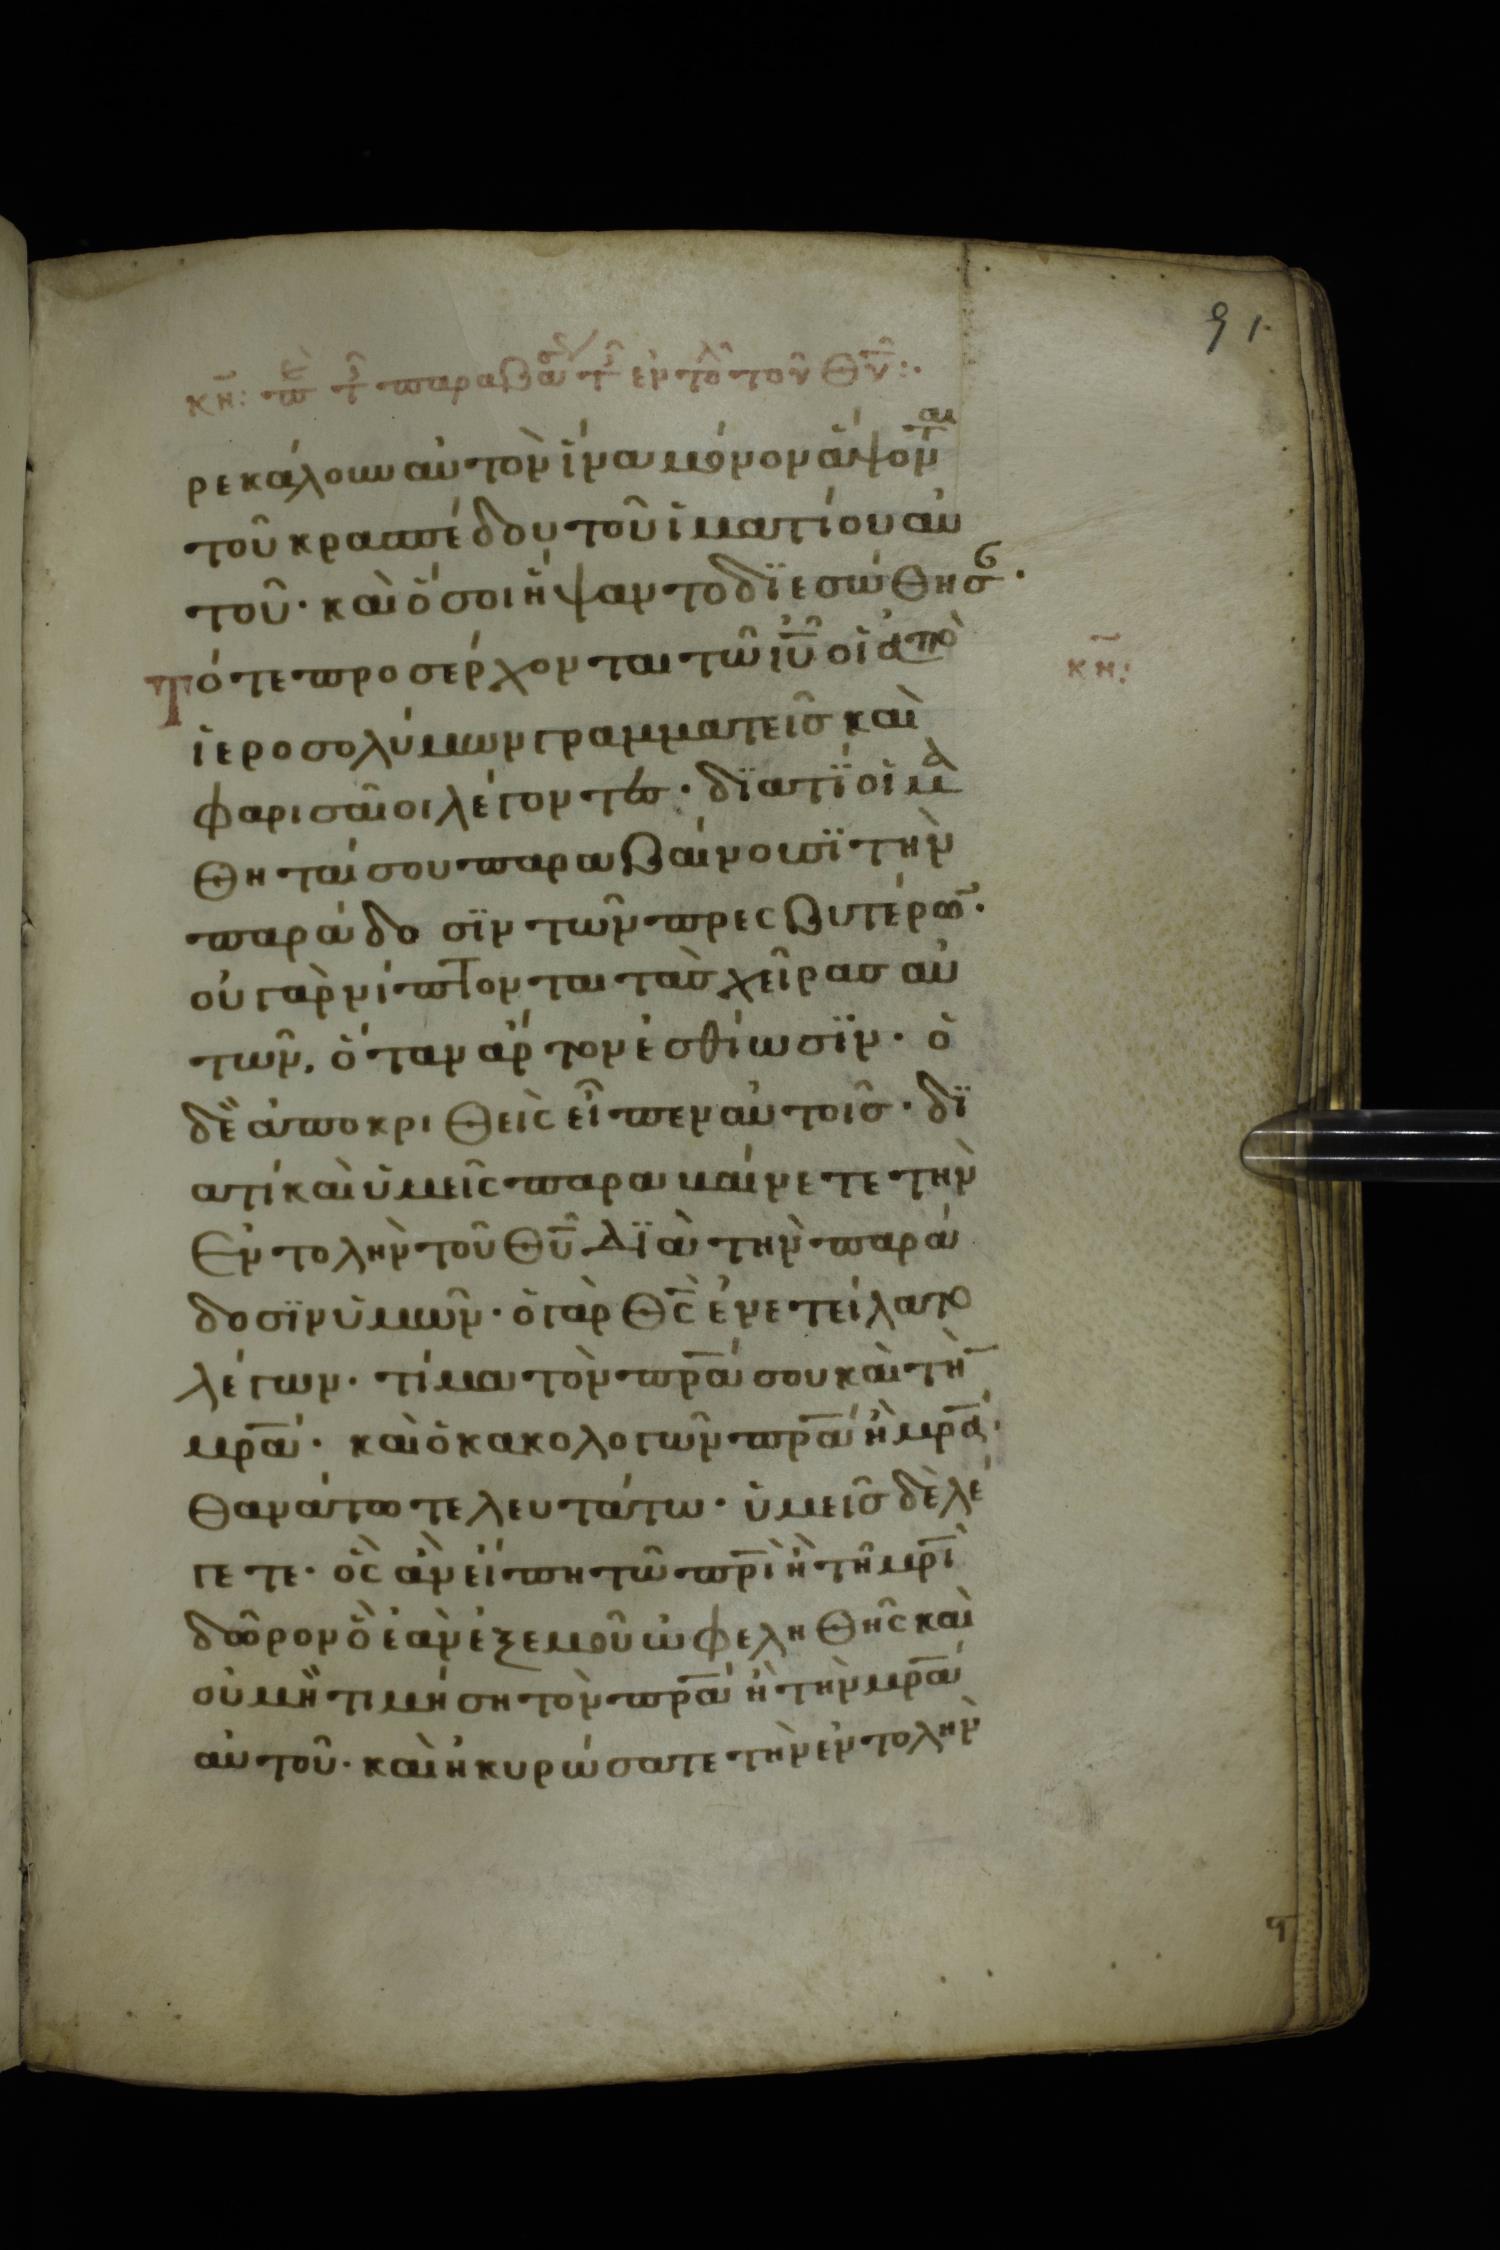 91
κη: πε τ παραβασ τ εντολ του θυ:.
ρεκάλουν αὐτὸν ἵνα μόνον ἅψονται
τοῦ κρασπέδου τοῦ ἱματίου αὐ
τοῦ· καὶ ὅσοι ἥψαντο δϊεσώθησ·
Τότε προσέρχονται τῶ ιυ οἱ ἀπὸ κη:
ἱεροσολύμων γραμματεῖσ καὶ
φαρισαῖοι λέγοντεσ· δϊατϊ οἱ μα
θηταί σου παραβαίνουσϊ τὴν
παράδοσϊν τῶν πρεσβυτέρω·
οὐ γὰρ νίπτονται τὰσ χεῖρασ αὐ
τῶν, ὅταν ἄρτον ἐσθίωσϊν· ὁ
δὲ ἀποκριθεὶς εἶπεν αὐτοῖσ· δϊ
ατί καὶ ὑμεῖς παραβαίνετε τὴν
ἐντολὴν τοῦ θυ δϊὰ τὴν παρά
δοσϊν ὑμῶν· ὁ γὰρ θς ἐνετείλατο
λέγων· τίμα τὸν πρα σου καὶ τὴ
μρα· καὶ ὁ κακολογῶν πρα ἢ μρα·
θανάτω τελευτάτω· ὑμεῖσ δὲ λέ
γετε· ὃς ἂν εἴπη τῶ πρι ἢ τῆ μρι
δῶρον ὃ ἐὰν ἐξ εμοῦ ὠφεληθῆς καὶ
οὐ μὴ τιμήση τὸν πρα ἢ τὴν μρα
αὐτοῦ· καὶ ἠκυρώσατε τὴν ἐντολὴν